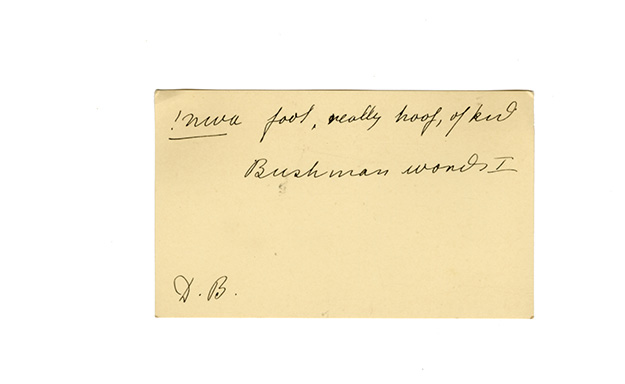 !nwa foot, really hoof, of kid
Bushman words I
D. B.